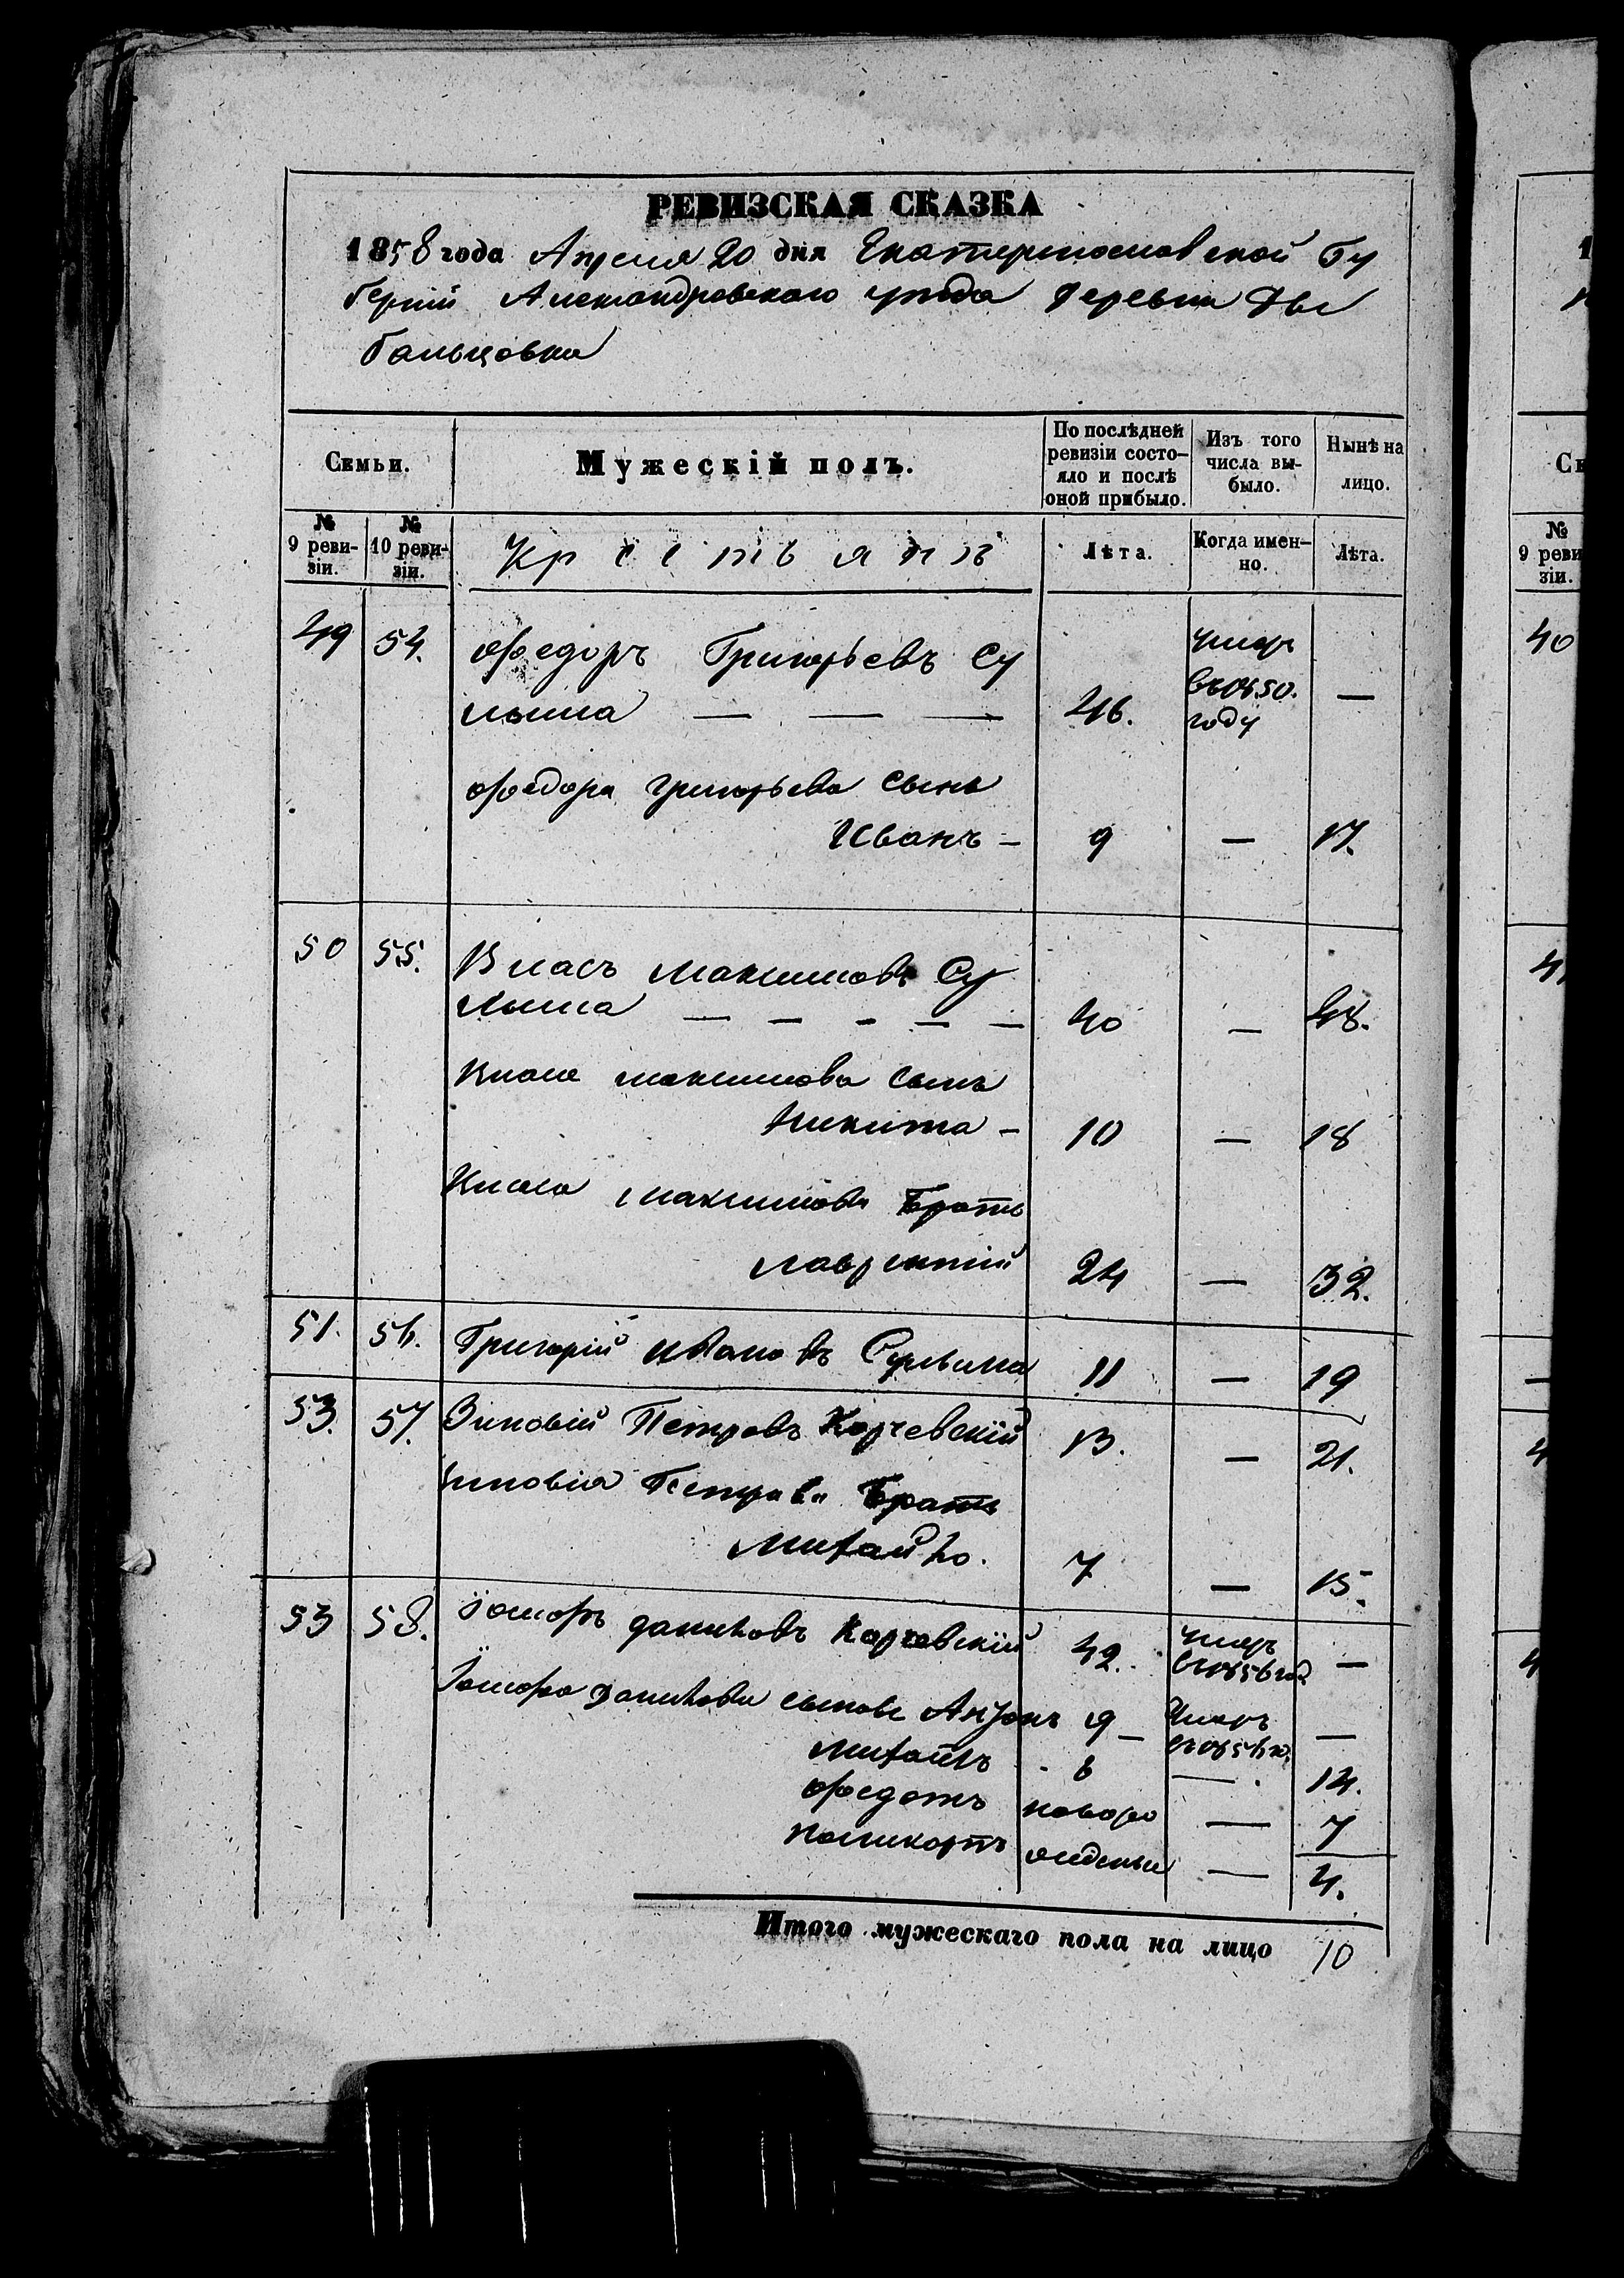 РЕВИЗСКАЯ СКАЗКА
1858 года Апреля 20 дня Екатеринославской Гу
берніи Александровскаго уезда деревни Де
бальцовки
Семьи.
Мужескій полъ.
По послѣдней ревизіи состо-
яло и послѣ
оной прибыло.
Изъ того
числа вы-
было.
Нынѣ на
лицо.
№
9 реви-
зіи.
№
10 реви-
зіи.
Крестьянъ
Лѣта.
Когда имен-
но.
Лѣта.
49 54. Федоръ Григорьевъ Су
лыма — — — 46. умеръ въ 1850. году —
Федора Григорьева сынъ
Иванъ — 9 — 17.
50 55. Власъ Максимовъ Су
лыма — — — — — 40 — 48.
Власа Максимова сынъ
Никита — 10 — 18
Власа Максимова Братъ
Лаврентій 24 — 32.
51. 56. Григорій Ивановъ Сулыма 11 — 19
53. 57. Зиновій Петровъ Корчевскій 13. — 21.
Зиновія Петрова Братъ
Михайло. 7 — 15.
53 58. Іосифъ Даниловъ Корчевскій 42. умеръ въ 1856 год —
Іосифа Данилова сынове Антонъ 9 — умеръ въ 1856 го. —
Михаилъ 6 — 14.
Федотъ новоро — 7
Поликарпъ жденные — 4.
Итого мужескаго пола на лицо 10
№
9 реви
зіи.
40